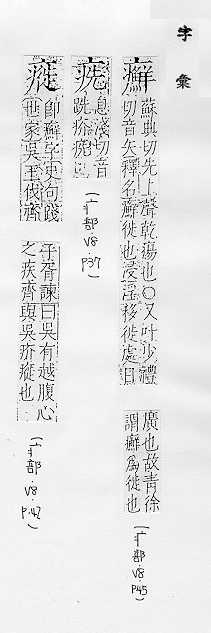 字彙
癬
蘇典切先上聲乾瘍也○又叶少禮
切音矢釋名癬徙也浸淫移徙處日
廣也故青徐
謂癬爲徙也
(疒部.V8.P45)
息淺切音
跣疥瘡
(疒部.V8.P37)
即癬字史句踐
世家吳王伐齊
子胥諫曰吳有越腹心
之疾齊與吳疥也
(疒部.V8.P.42)